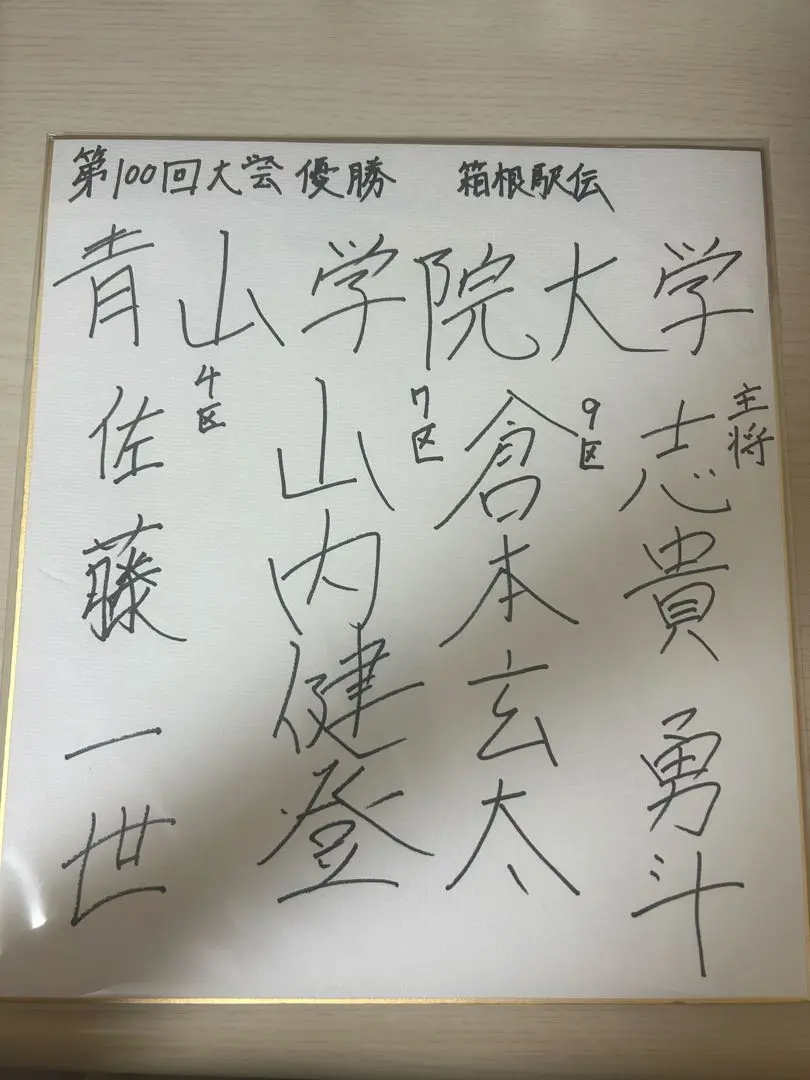 第100回大会 優勝 箱根駅伝
青山学院大学
主将
志貴 勇斗
9区
倉本玄太
7区
山内健登
4区
佐藤一世